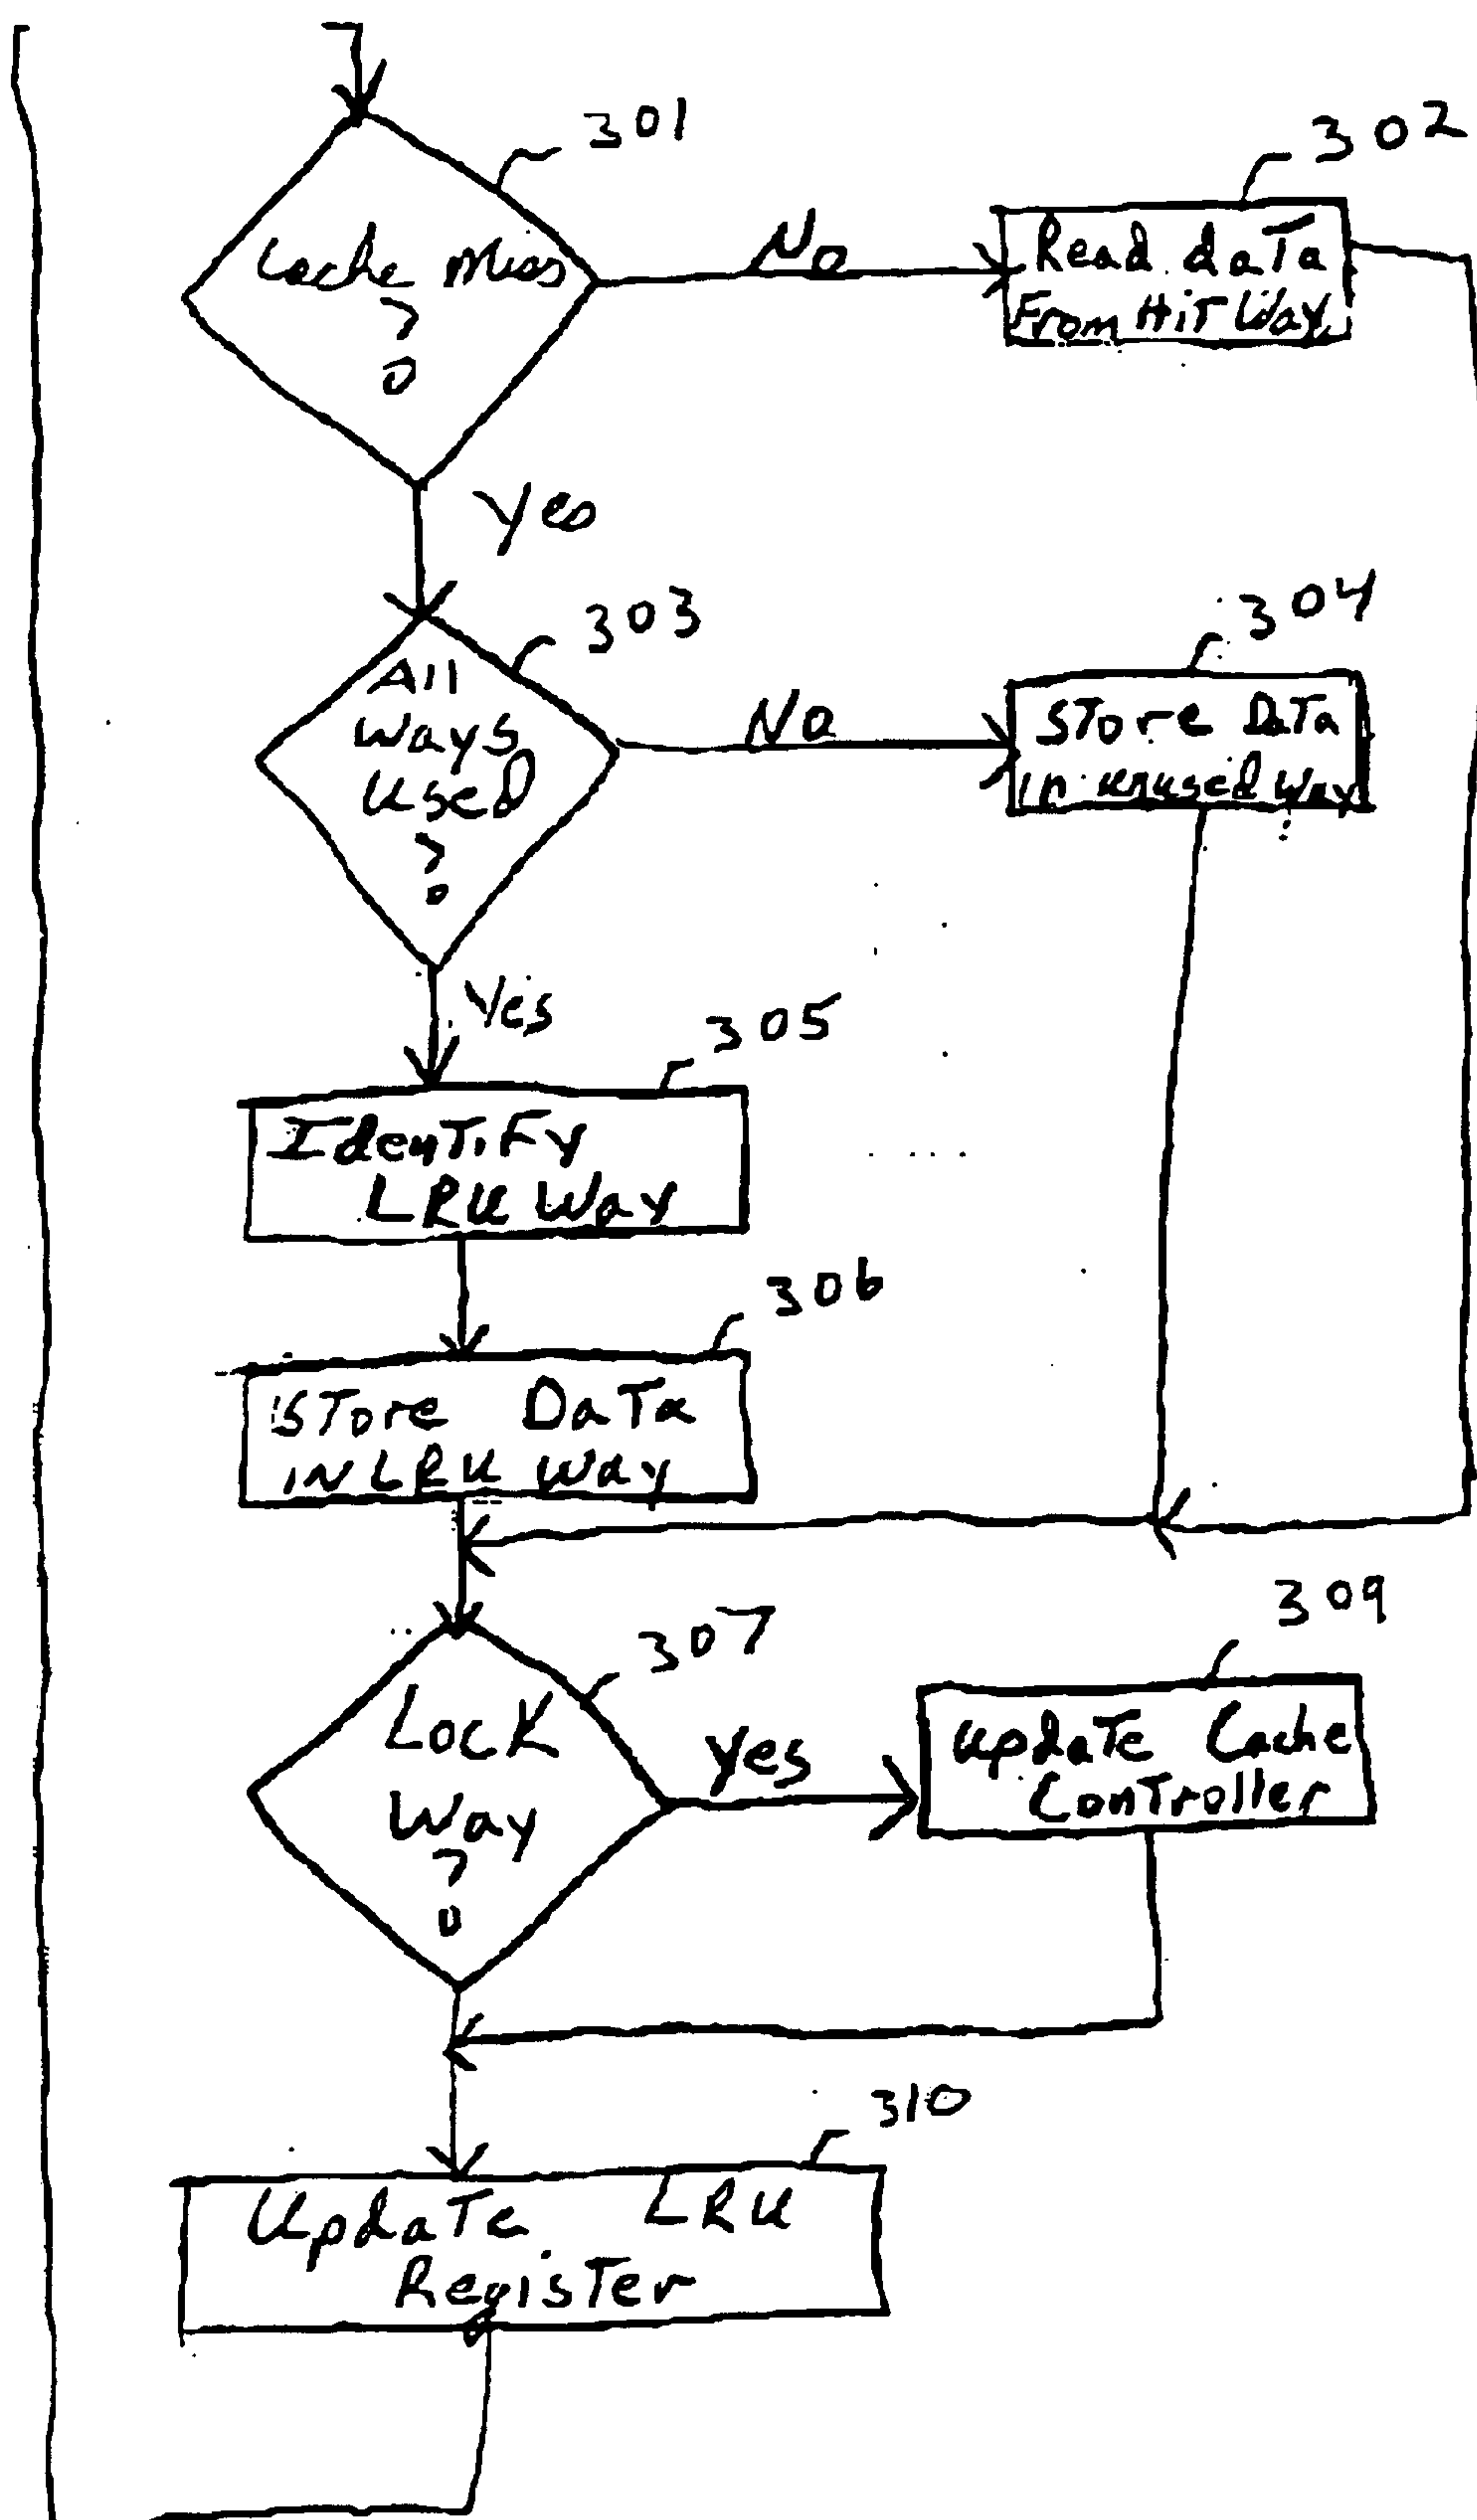 301
302
Cache Miss
?
No
Read data
From Hit Way
Yes
303
304
All
ways
used
?
No
Store Data
in unused way
Yes
305
Identify
LRU Way
306
Store Data
in LRU way
307
309
Lock
Way
?
Yes
Update Cache
Controller
310
Update LRU
Register